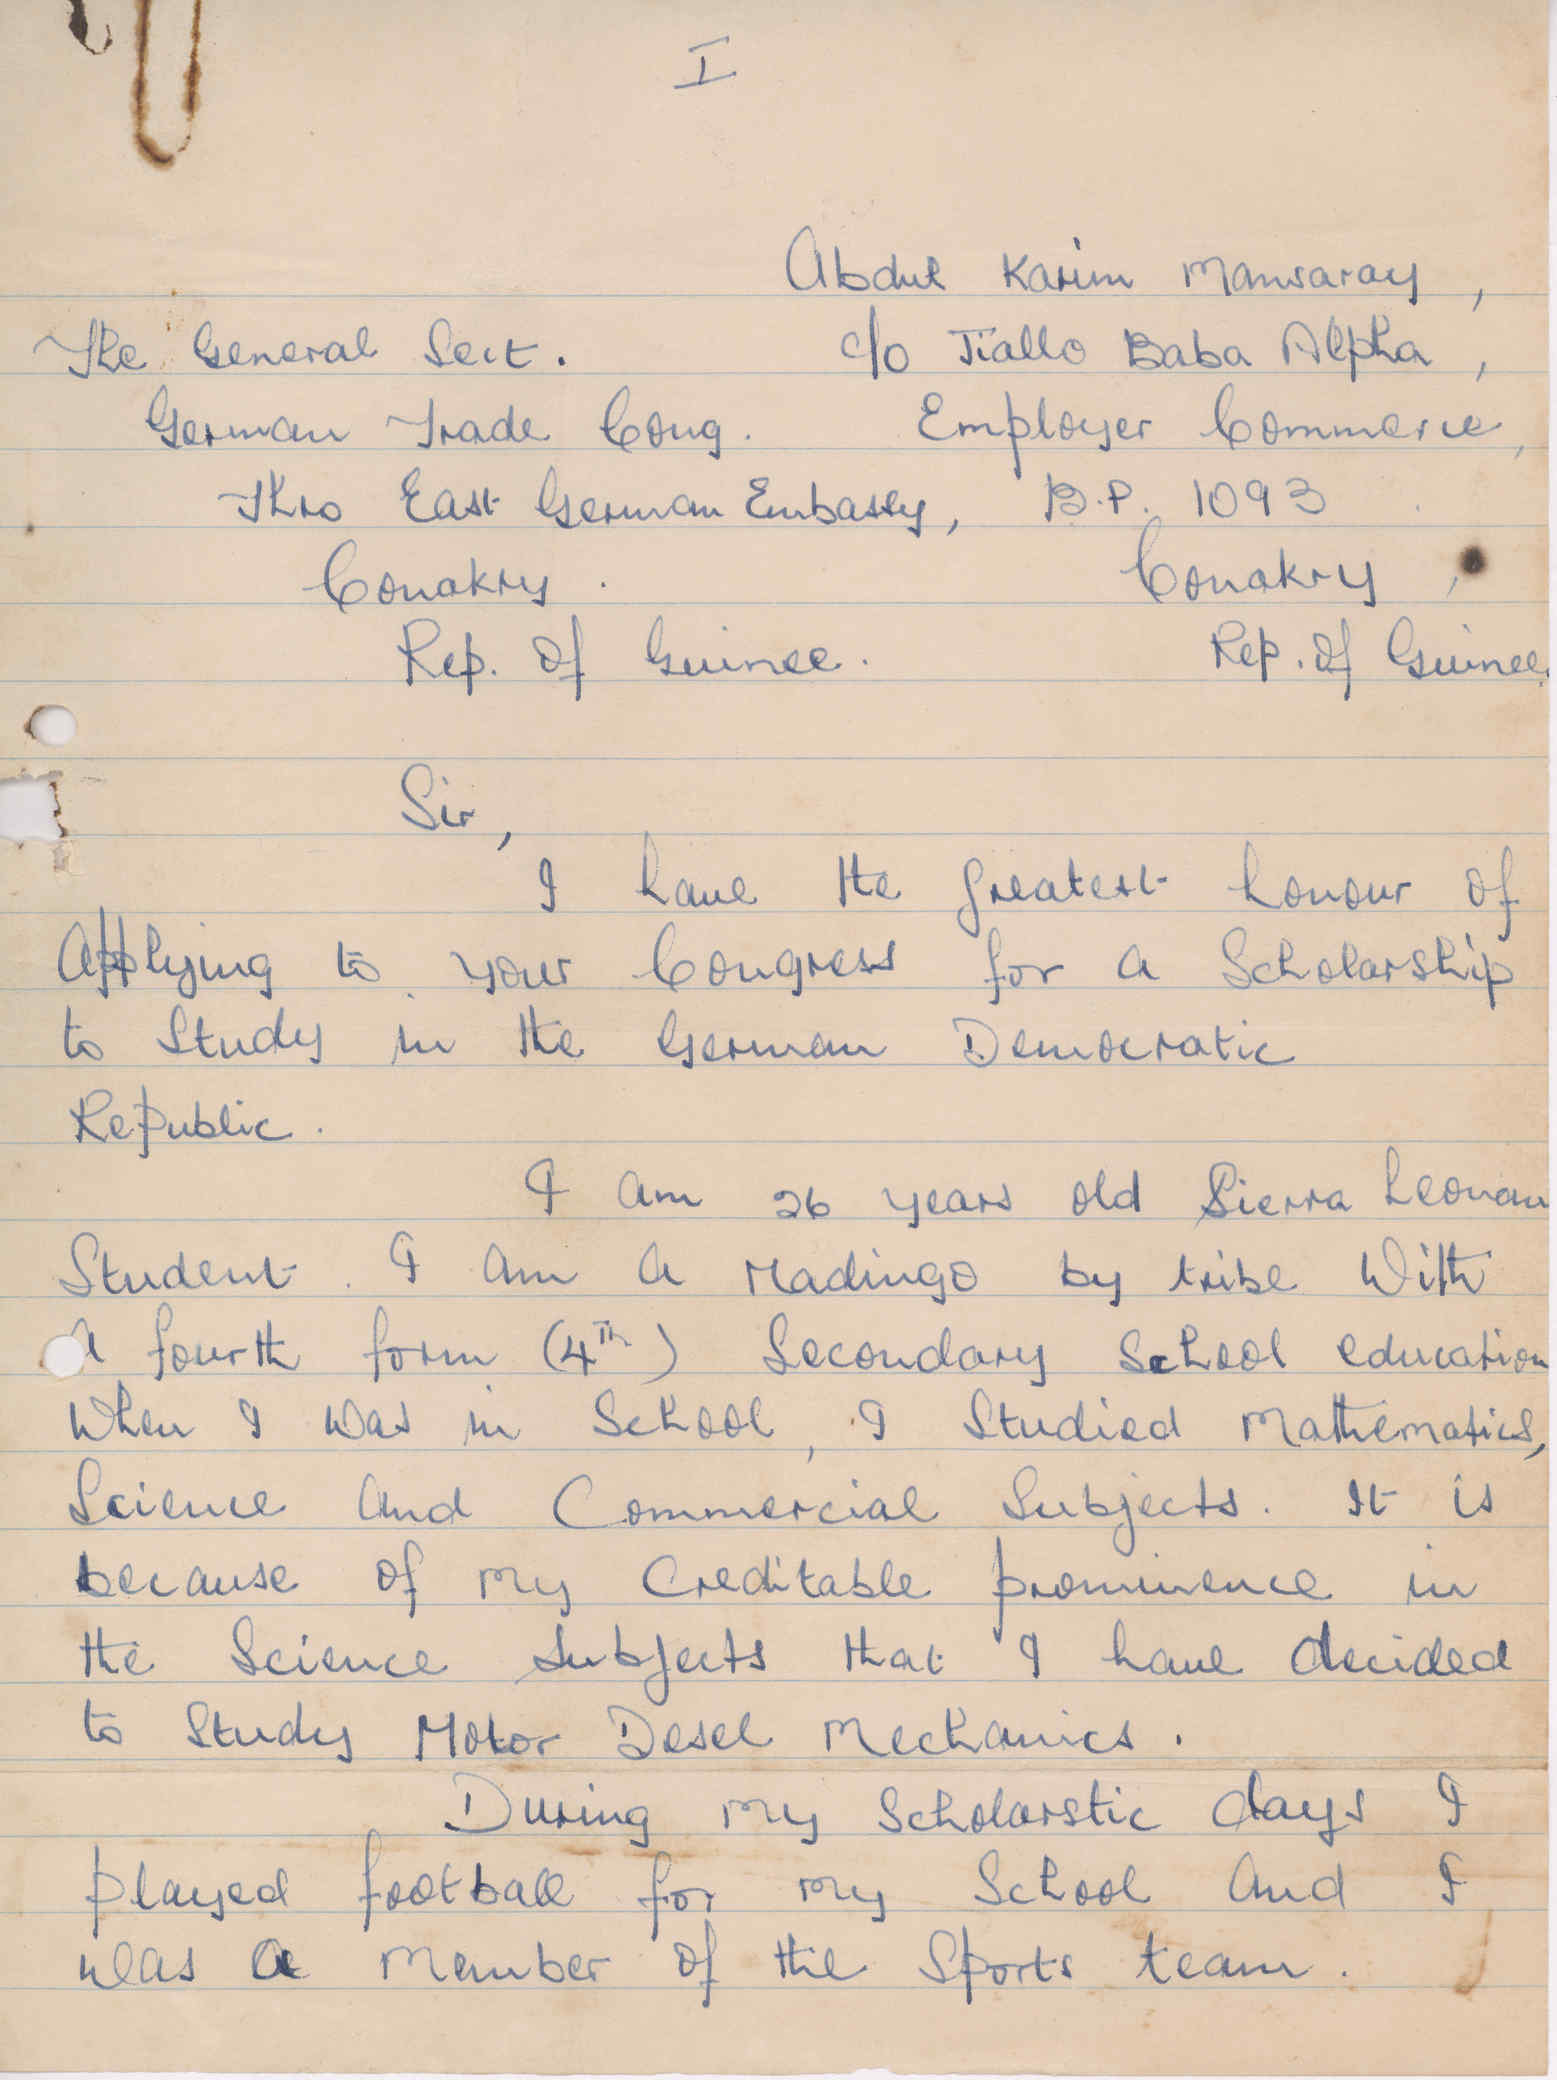 I
Abdul Karim Mansaray,
The General Sect. c/o Jiallo Baba Alpha,
German Trade Cong. Employer Commerce,
Thro East German Embassy, B.P. 1093
Conakry. Conakry,
Rep. Of Guinee. Rep. Of Guinee.
Sir,
I have the greatest honour of
Applying to your Congress for a Scholarship
to Study in the German Democratic
Republic.
I am 26 years old Sierra Leonan
Student. I am a Madingo by tribe With
A fourth form (4th) Secondary School education
When I was in School, I Studied Mathematics,
Science and Commercial Subjects. It is
because of my Creditable prominence in
the Science Subjects that I have decided
to Study Motor Desel Mechanics.
During my Scholarstic days I
played football for my School and I
was a Member of the Sports team.